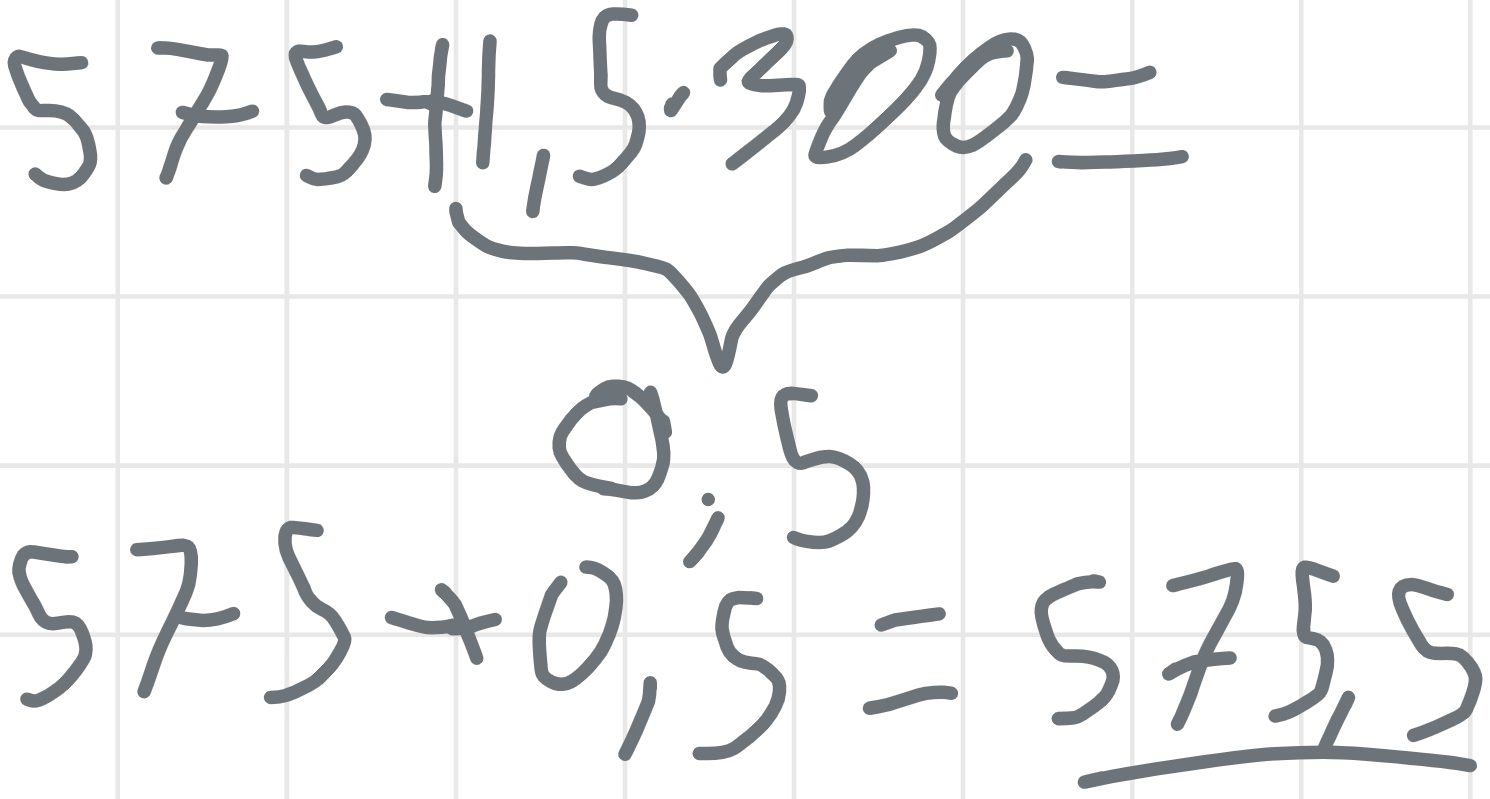 575+1,5·300=
0,5
575+0,5=575,5